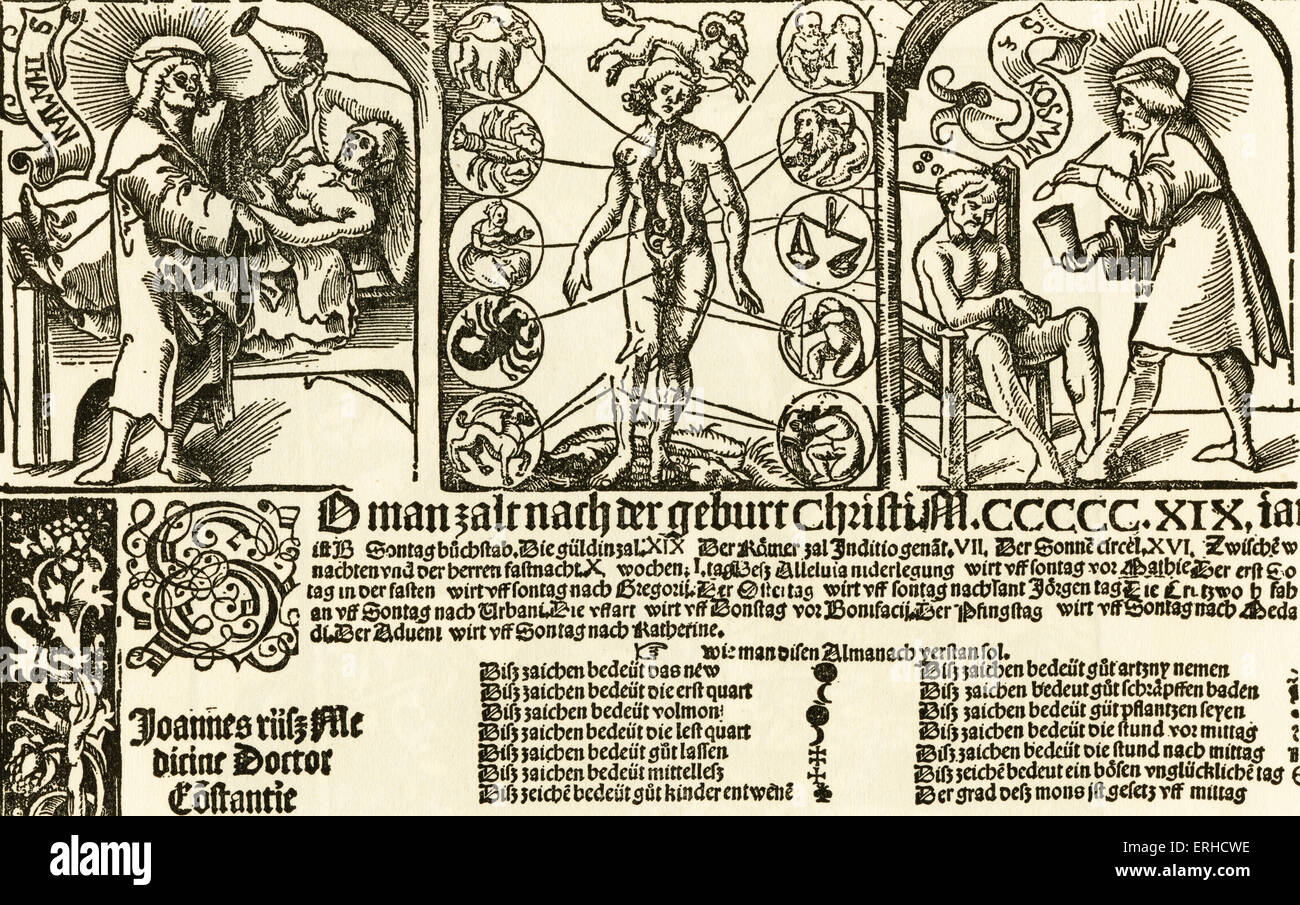 S THAMIAN
S KOSMAN
O man zalt nach der geburt Christi M.CCCCC.XIX, iar
ist B Sontag bůchstab. Die güldin zal. XIX Der Römer zal Inditio genãt. VII. Der Sonnẽ circel. XVI. Zwischẽ w
nachten vnd der herren fastnacht. X wochen. I. tag Desz Alleluia niderlegung wirt vff sontag vor Mathie Der erst So
tag in der fasten wirt vff sontag nach Gregorij. Der Ostertag wirt vff sontag nach sant Jörgen tag Die Crützwoh fah
an vff Sontag nach Urbani. Die vffart wirt vff Donstag vor Bonifacij. Der Pfingstag wirt vff Sontag nach Meda
di. Der Aduent wirt vff Sontag nach Katherine.
wie man disen Almanach verstan sol.
Joannes rüsz Me
dicine Doctor
Cõstantie
Disz zaichen bedeüt das new
Disz zaichen bedeüt die erst quart
Disz zaichen bedeüt volmon
Disz zaichen bedeüt die lest quart
Disz zaichen bedeüt gůt lassen
Disz zaichen bedeüt mittellesz
Disz zeichẽ bedeüt gůt kinder entwenẽ
Disz zaichen bedeüt gůt artzny nemen
Disz zaichen bedeut gůt schräpffen baden
Disz zaichen bedeüt gůt pflantzen seyen
Disz zaichen bedeüt die stund vor mittag
Disz zaichen bedeüt die stund nach mittag
Disz zeichẽ bedeut ein bösen vnglücklichẽ tag
Der grad desz mons ist gesetz vff mittag
alamy
alamy stock photo
ERHCWE
www.alamy.com